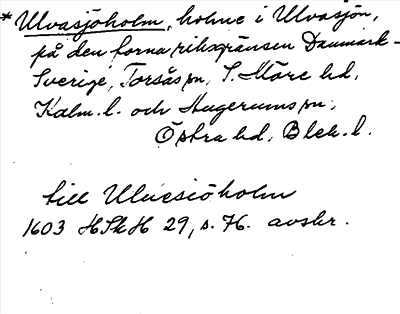 * Ulvasjöholm, holme i Ulvasjön,
på den forna riksgränsen Danmark-
Sverige, Torsås sn, S. Möre hd,
Kalm. l. och Hugerums sn,
Östra hd, Blek. l.
till Uluesiöholm
1603 HSkH 29, s. 76. avskr.